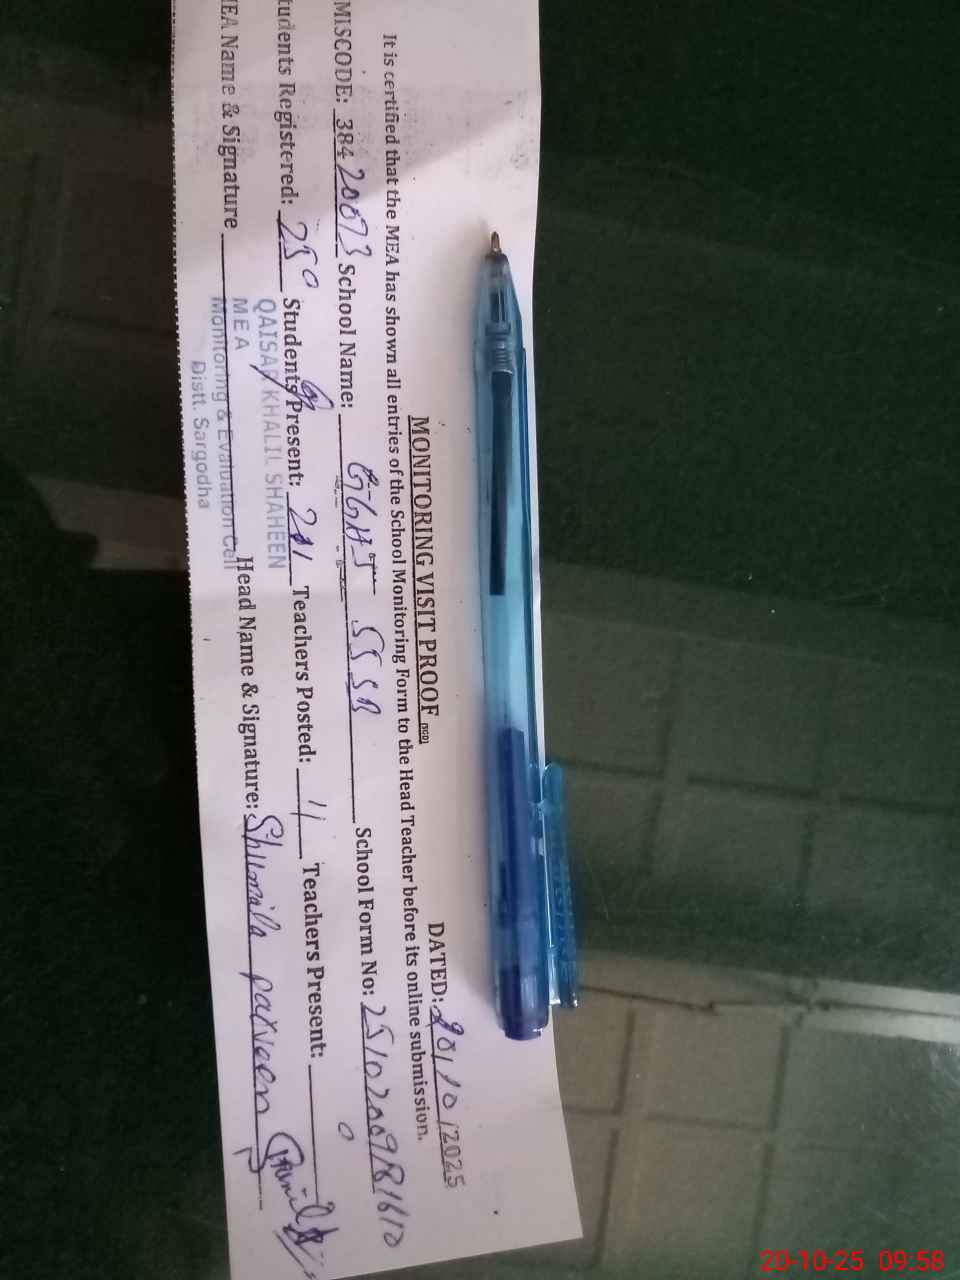 MONITORING VISIT PROOF (SED)
DATED: 20/10/2025
It is certified that the MEA has shown all entries of the School Monitoring Form to the Head Teacher before its online submission.
MISCODE: 38420073 School Name: GGHS 55SB School Form No:
tudents Registered: 250 Students Present: Teachers Posted: 11 Teachers Present:
QAISAR KHALIL SHAHEEN
MEA
Monitoring & Evaluation Cell
Distt. Sargodha
EA Name & Signature Head Name & Signature: Shumaila parveen
20-10-25 09:58